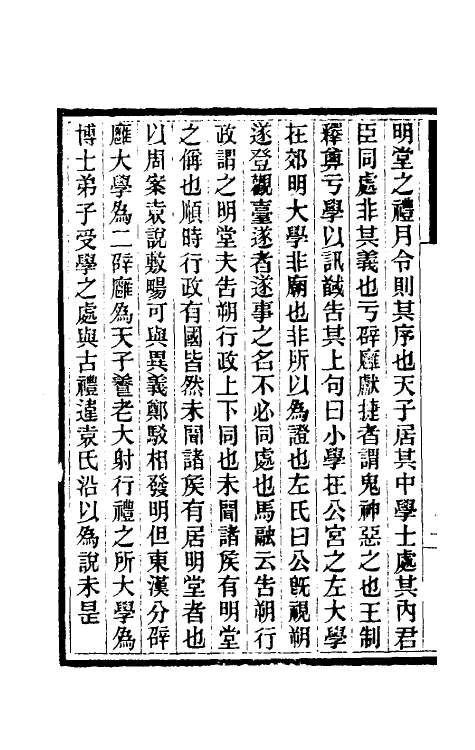 明堂之禮月令則其序也天子居其中學士處其內君
臣同處非其義也亏辟廱獻捷者謂鬼神惡之也王制
釋奠亏學以訊馘告其上句曰小學在公宮之左大學
在郊明大學非廟也非所以為證也左氏曰公旣視朔
遂登觀臺遂者遂事之名不必同處也馬融云告朔行
政謂之明堂夫告朔行政上下同也未聞諸矦有明堂
之偁也順時行政有國皆然未聞諸矦有居明堂者也
以周案袁說敷暢可與異義鄭駮相發明但東漢分辟
廱大學為二辟廱為天子養老大射行禮之所大學為
博士弟子受學之處與古禮違袁氏沿以為說未是